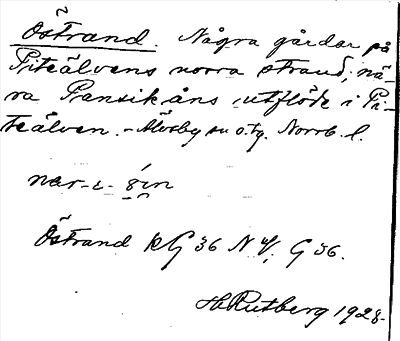 Östrand. Några gårdar på
Piteälvens norra strand, nä-
ra Pansikåns utflöde i Pi-
teälven. - Älvsby sn o. tg. Norrb. l.
Östrand RG 36 N V. G 36.
H. Rutberg 1928.